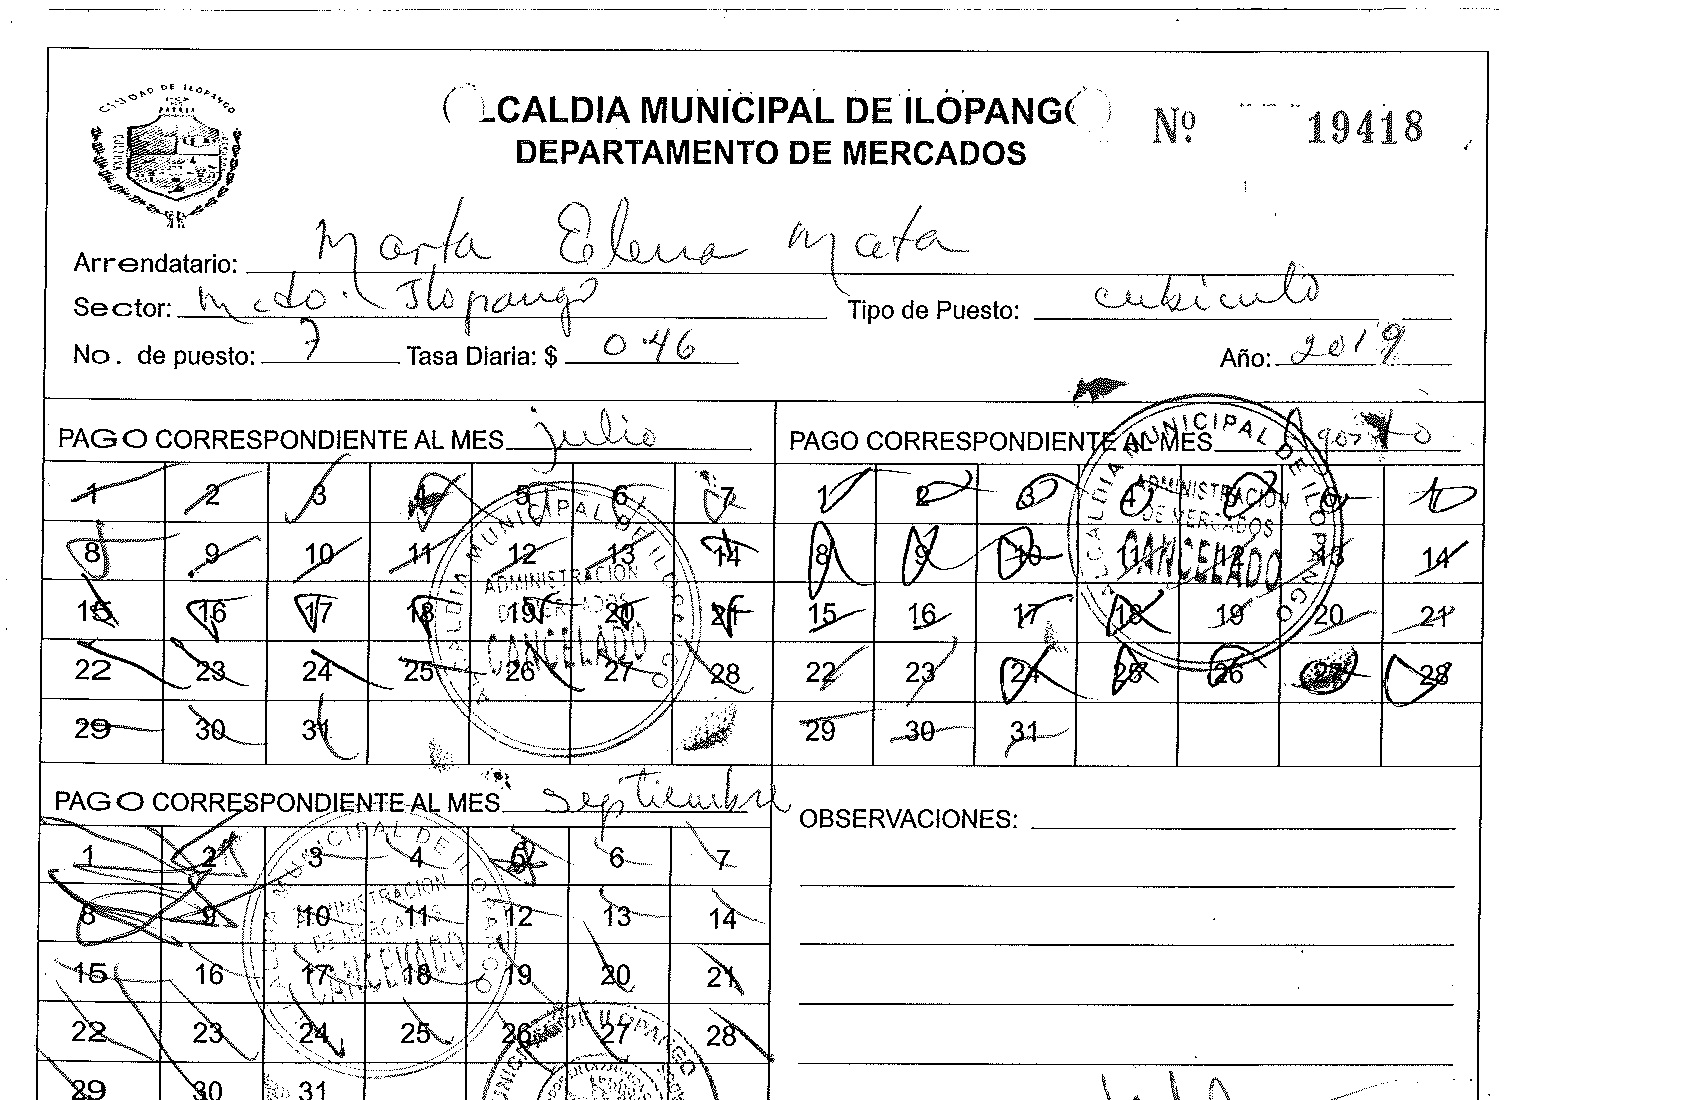 CIUDAD DE ILOPANGO
LCALDIA MUNICIPAL DE ILOPANGO
Nº 19418
DEPARTAMENTO DE MERCADOS
Arrendatario: Marta Elena Mata
Sector: Mcdo. Ilopango Tipo de Puesto: cubiculo
No. de puesto: 7 Tasa Diaria: $ 0.46 Año: 2019
PAGO CORRESPONDIENTE AL MES julio
1 2 3 4 5 6 7
8 9 10 11 12 13 14
15 16 17 18 19 20 21
22 23 24 25 26 27 28
29 30 31
ALCALDIA MUNICIPAL DE ILOPANGO
ADMINISTRACION
DE MERCADOS
CANCELADO
PAGO CORRESPONDIENTE AL MES Agosto
1 2 3 4 5 6 7
8 9 10 11 12 13 14
15 16 17 18 19 20 21
22 23 24 25 26 27 28
29 30 31
ALCALDIA MUNICIPAL DE ILOPANGO
ADMINISTRACION
DE MERCADOS
CANCELADO
PAGO CORRESPONDIENTE AL MES septiembre
1 2 3 4 5 6 7
8 9 10 11 12 13 14
15 16 17 18 19 20 21
22 23 24 25 26 27 28
29 30 31
ALCALDIA MUNICIPAL DE ILOPANGO
ADMINISTRACION
DE MERCADOS
CANCELADO
DE ILOPANGO
OBSERVACIONES: